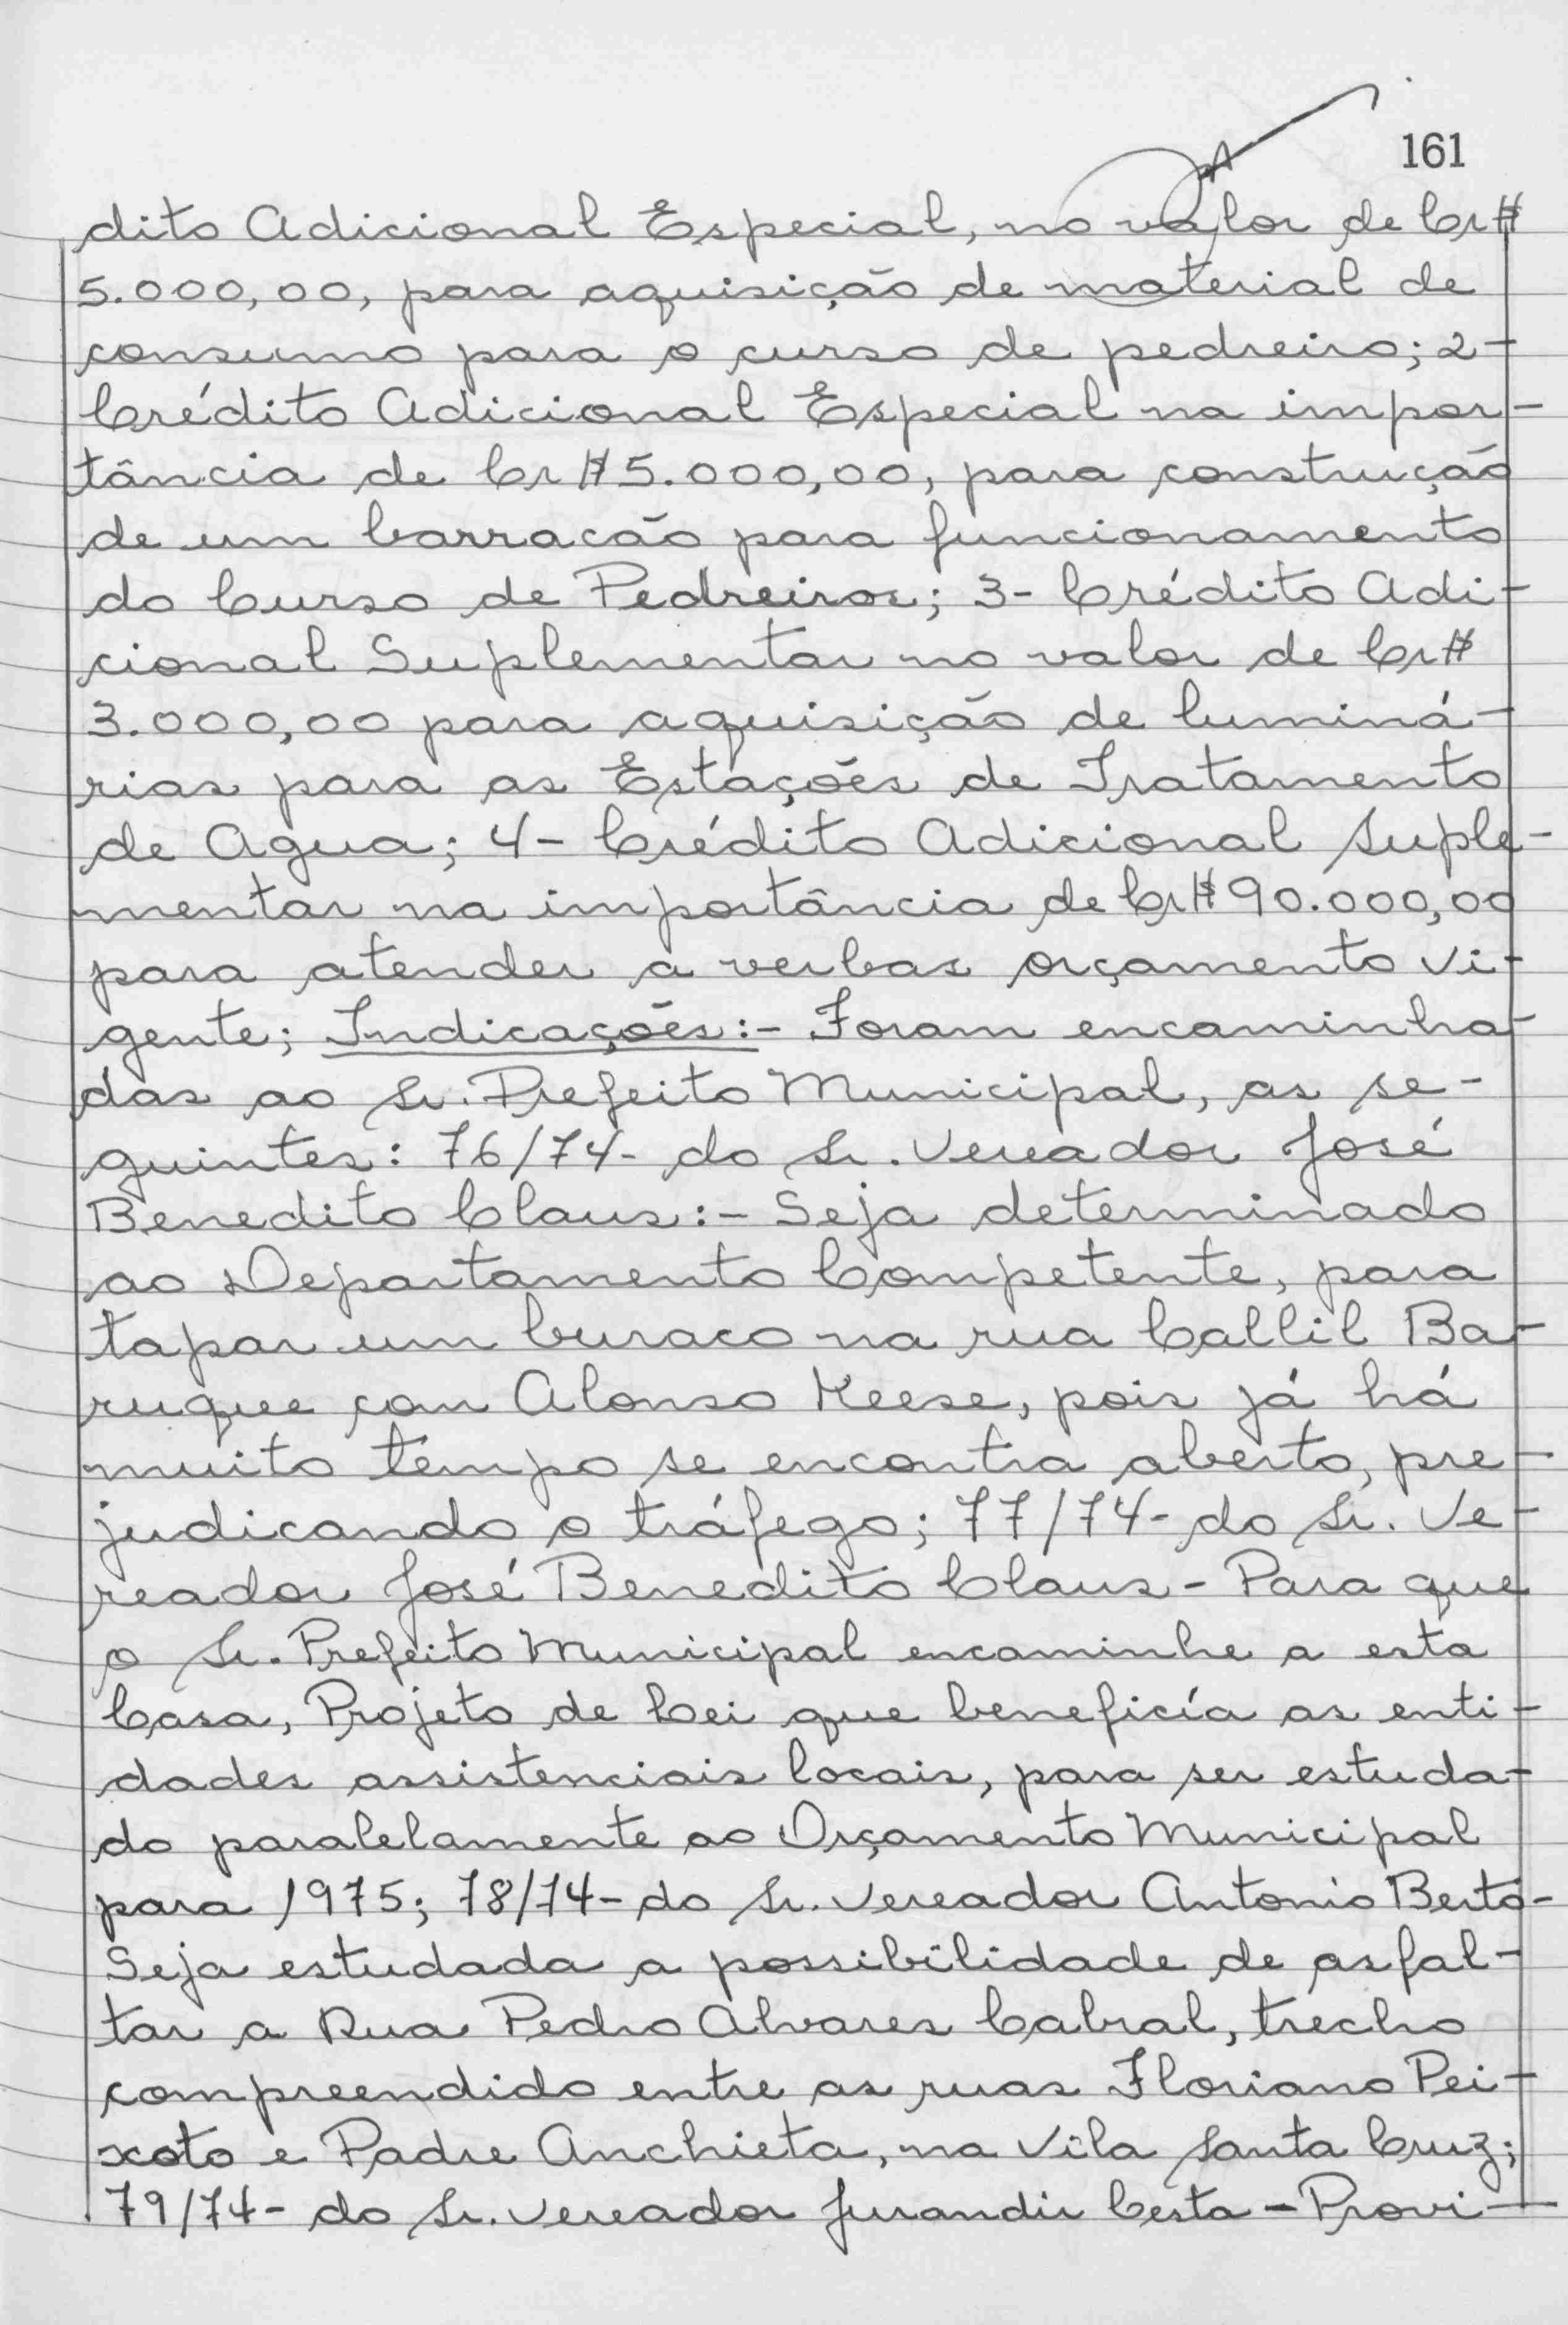 161
dito Adicional Especial, no valor de Cr$
5.000,00, para aquisição de material de
consumo para o curso de pedreiro; 2-
Crédito Adicional Especial na impor-
tância de Cr$5.000,00, para construção
de um barracão para funcionamento
do Curso de Pedreiros; 3- Crédito Adi-
cional Suplementar no valor de Cr$
3.000,00 para aquisição de luminá-
rias para as Estações de Tratamento
de Agua; 4- Crédito Adicional Suple-
mentar na importância de Cr$90.000,00
para atender a verbas orçamento vi-
gente; Indicações:- Foram encaminha-
das ao Sr. Prefeito Municipal, as se-
guintes: 76/74- do Sr. Vereador José
Benedito Claus:- Seja determinado
ao Departamento Competente, para
tapar um buraco na rua Callil Ba-
ruque com Alonso Keese, pois já há
muito tempo se encontra aberto, pre-
judicando o tráfego; 77/74- do Sr. Ve-
reador José Benedito Claus - Para que
o Sr. Prefeito Municipal encaminhe a esta
Casa, Projeto de Lei que beneficía as enti-
dades assistenciais locais, para ser estuda-
do paralelamente ao Orçamento Municipal
para 1975; 78/74- do Sr. Vereador Antonio Berto-
Seja estudada a possibilidade de asfal-
tar a Rua Pedro Alvares Cabral, trecho
compreendido entre as ruas Floriano Pei-
xoto e Padre Anchieta, na Vila Santa Cruz;
79/74- do Sr. Vereador Jurandir Cesta - Provi-